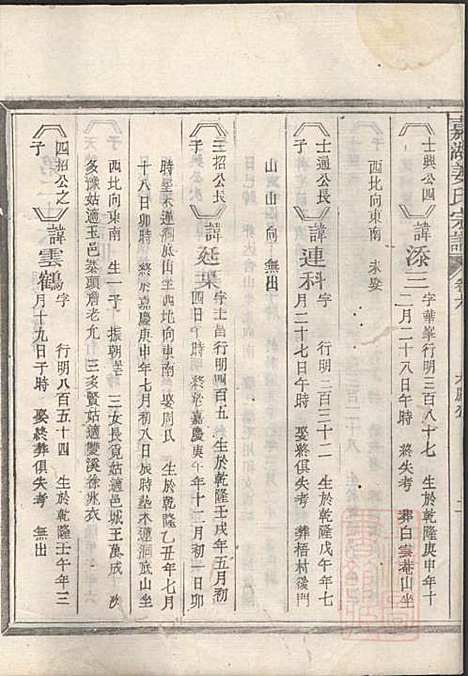 嘉湖姜氏宗譜
士興公四子
諱添三
字華峯行明三百八十七 生於乾隆庚申年十
二月二十八日午時 終失考 葬白雲菴山坐
西北向東南 未娶
士過公長子
諱連科
字 行明二百三十二 生於乾隆戊午年七
月二十七日午時 娶終俱失考 葬梧村後門
山 山向
三招公長子
諱延葉
字士昌行明四百五 生於乾隆壬戌年五月初
四日子時 終於嘉慶庚午年十二月初一日卯
時墊木連洞底山坐西北向東南 娶周氏 生於乾隆乙丑年七月
十八日卯時 終於嘉慶庚申年七月初八日辰時墊木連洞底山坐
西北向東南 生一子 振朝 三女長寬姑適邑城王萬成 次
多彖姑適玉邑葉頭詹老九 三亥賢姑適雙溪徐兆衣
四招公之子
諱雲鶴
字 行明八百五十四 生於乾隆壬午年三
月十九日子時 娶終葬俱失考 無出